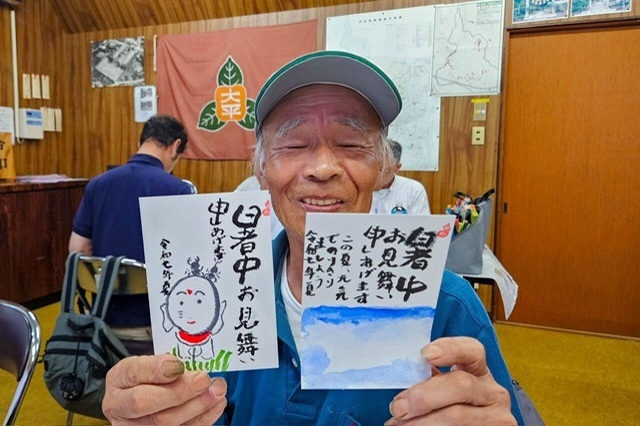 大平
暑中お見舞い
申しあげます
令和七年夏
暑中
お見舞い
申しあげます
この夏、
ましょう
令和七年夏